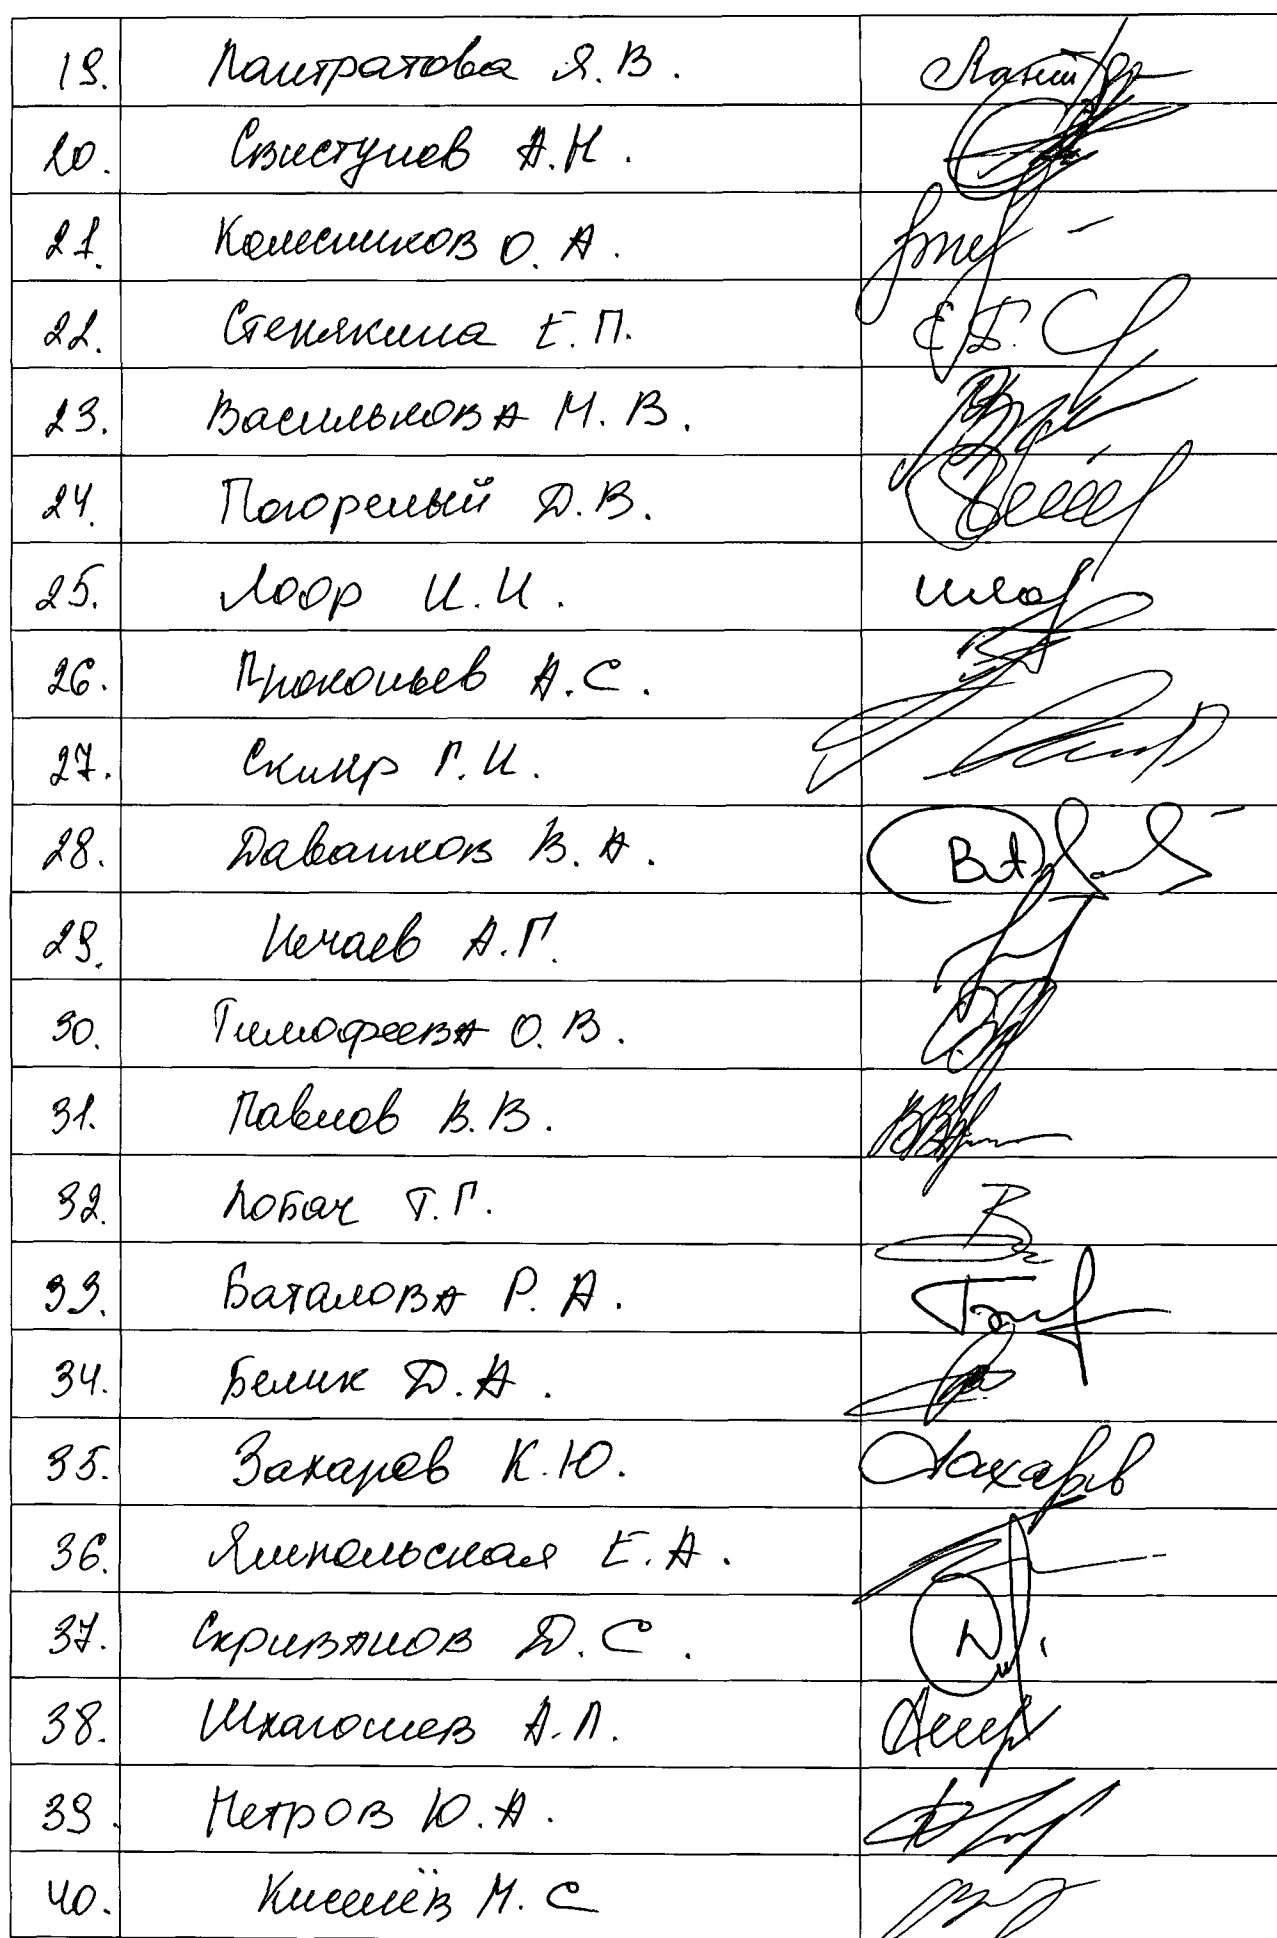 19. Пантратова Я. В.
20. Свистунов А. Н.
21. Колесников О. А.
22. Стенякина Е. П.
23. Василькова М. В.
24. Погорелый Д. В.
25. Лоор И. И.
26. Прокопьев А. С.
27. Скляр Г. И.
28. Давашков В. А.
29. Нечаев А. Г.
30. Тимофеева О. В.
31. Павлов В. В.
32. Лобач Т. Г.
33. Баталова Р. А.
34. Белик Д. А.
35. Захаров К. Ю. Захаров
36. Ямпольская Е. А.
37. Скриванов Д. С.
38. Шхагошев А. Л.
39. Петров Ю. А.
40. Киселёв М. С